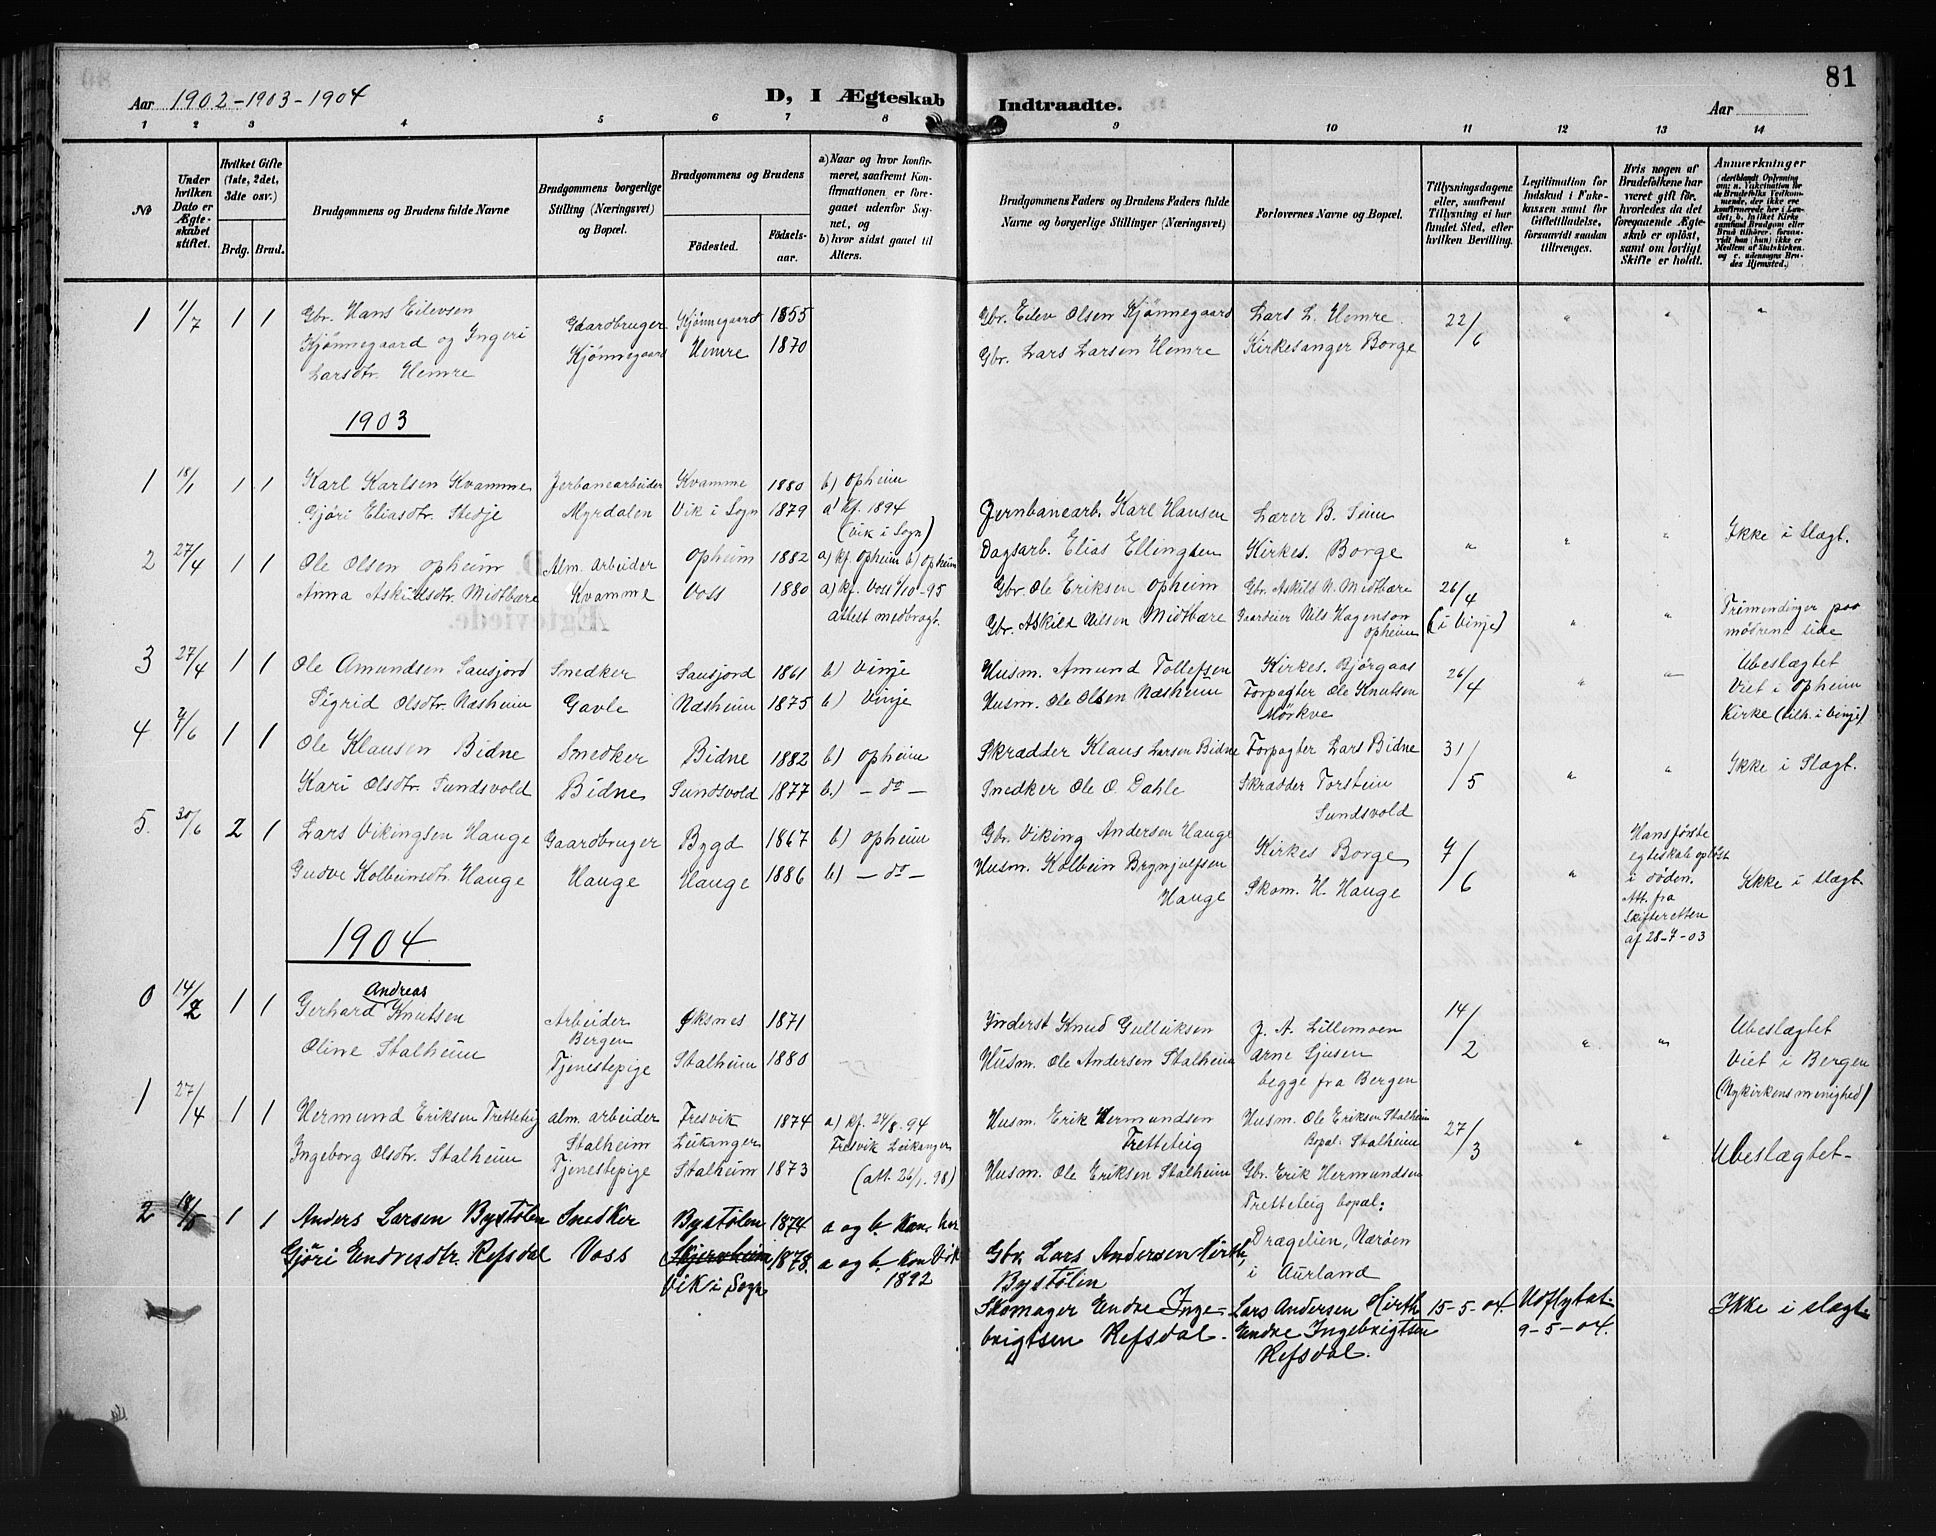 81
Aar 1902-1903-1904
D, I Ægteskab Indtraadte.
Aar
1 2 3 4 5 6 7 8 9 10 11 12 13 14
No
Under hvilken Dato er Ægteskabet stiftet.
Hvilket Gifte (1ste, 2det, 3die osv.)
Brdg. Brud.
Brudgommens og Brudens fulde Navne
Brudgommens borgerlige Stilling (Næringsvei) og Bopæl.
Brudgommens og Brudens
Fødested.
Fødselsaar.
a) Naar og hvor konfirmeret, saafremt Konfirmationen er foregaaet udenfor Sognet, og
b) hvor sidst gaaet til Alters.
Brudgommens Faders og Brudens Faders fulde Navne og borgerlige Stillinger (Næringsvei)
Forlovernes Navne og Bopæl.
Tillysningsdagene eller, saafremt Tillysning ei har fundet Sted, efter hvilken Bevilling.
Legitimation for Indskud i Enkekassen samt for Giftetilladelse, forsaavidt saadan tiltrænges.
Hvis nogen af Brudefolkene har været gift før, hvorledes da det foregaaende Ægteskab er opløst, samt om lovligt Skifte er holdt.
Anmærkninger
1 1/7 1 1 Gbr. Hans Eilevsen Gaardbruger Kjønnegaard 1855 Gbr. Eilev Olsen Kjønnegaard Lars L. Hemre. 22/6 " " "
Kjønnegaard og Ingeri Kjønnegaard Hemre 1870 Gbr. Lars Larsen Hemre Kirkesanger Borge
Larsdtr. Hemre
1903
1 18/1 1 1 Karl Karlsen Kvamme Jerbanearbeider Kvamme 1880 b) Opheim
Gjøri Eliasdtr. Stedje Myrdalen Vik i Sogn 1879 a) kf. 1894 (Vik i Sogn) Jernbanearb. Karl Hansen Lærer B. Seim
Dagsarb. Elias Ellingsen Kirkes. Borge " " " Ikke i Slagt.
2 27/4 1 1 Ole Olsen Opheim Alm. arbeider Opheim 1882 a) kf. Opheim b) Opheim
Anna Askildsdtr. Midtbære Kvamme Voss 1880 a) kf. Voss 6/10-95 attest medbragt. Gbr. Ole Eriksen Opheim Gbr. Askild N. Midtbære 26/4
Gbr. Askild Nilsen Midtbære Gaardeier Nils Hagenson Opheim (i Vinje) " " Tremendinger paa mødrene side
3 27/4 1 1 Ole Amundsen Sausjord Snedker Sausjord 1861 b) Vinje Husm. Amund Tollefsen Kirkes. Bjørgaas 26/4 " " Ubeslægtet
Sigrid Olsdtr. Næsheim Gavle Næsheim 1875 b) Vinje Husm. Ole Olsen Næsheim Forpagter Ole Knutsen Mørkve Viet i Opheim Kirke (tilh. i Vinje)
4 7/6 1 1 Ole Klausen Bidne Snedker Bidne 1882 b) Opheim Skrædder Klaus Larsen Bidne Forpagter Lars Bidne 31/5 " " Ikke i Slagt.
Kari Olsdtr. Sundsvold Bidne Sundsvold 1877 b.) - do - Snedker Ole O. Dahle Skrædder Torstein Sundsvold
5. 30/6 2 1 Lars Vikingsen Hauge Gaardbruger Bygd 1867 b) Opheim Gbr. Viking Andersen Hauge Kirkes Borge 7/6 " Hans første egteskab opløst i døden. Att. fra Skifteretten af 28-7-03 Ikke i slagt.
Gudve Kolbeinsdtr. Hauge Hauge Hauge 1886 b) - do - Husm. Kolbein Brynjulfsen Hauge Skom. H. Hauge
1904
0 14/2 1 1 Gerhard Andreas Knutsen Arbeider Bergen Øksnes 1871 Inderst Knud Gulleiksen J. A. Lillemoen 14/2 " " Ubeslægtet
Oline Stalheim Tjenestepige Stalheim 1880 Husm. Ole Andersen Stalheim Arne Gjusen begge fra Bergen Viet i Bergen (Nykirkens menighed)
1 27/4 1 1 Hermund Eriksen Tretteteig alm. arbeider Stalheim Fresvik Leikanger 1874 a) kf. 24/8. 94 Fresvik Leikanger (att. 26/1. 98) Husm. Erik Hermundsen Tretteteig Husm. Ole Eriksen Stalheim Bopæl: Stalheim 27/3 " " Ubeslægtet-
Ingeborg Olsdtr. Stalheim Tjenestepige Stalheim 1873 Husm. Ole Eriksen Stalheim Gbr. Erik Hermundsen Tretteteig bopæl: Drægelien, Nærøen i Aurland
2 18/5 1 1 Anders Larsen Bystølen Snedker Bystølen 1874 a og b. Kon. her
Gjøri Endresdtr. Refsdal Voss Vik i Sogn 1878. a og b. Kon Vik 1892 Gbr. Lars Andersen Hirth, Bystølen
Skomager Endre Ingebrigtsen Refsdal. Lars Andersen Hirth Endre Ingebrigtsen Refsdal. 15-5-04. Udflytat. 9-5-04. Ikke i slagt.